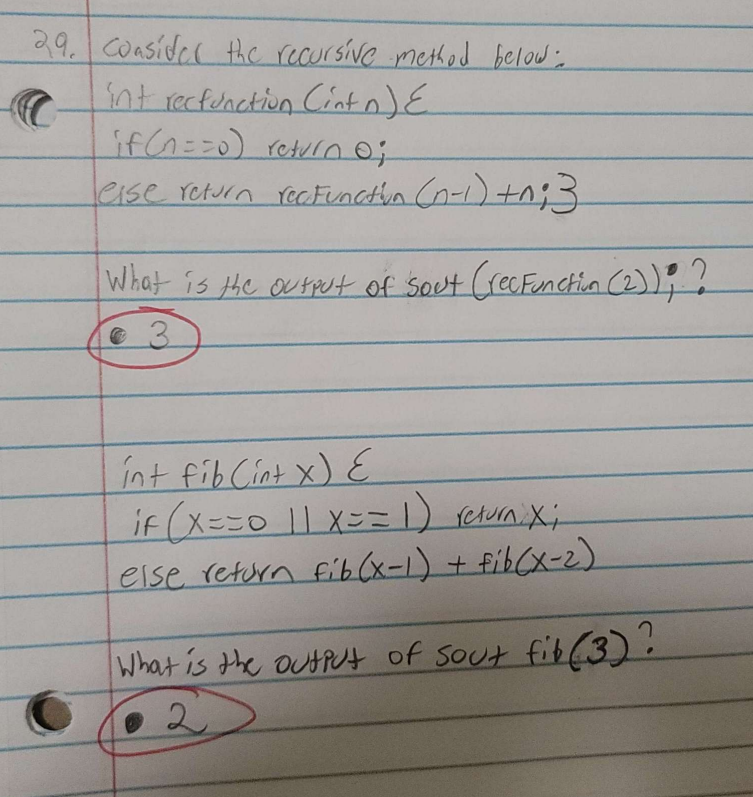 29. Consider the recursive method below:
int recfunction (int n) {
if(n==0) return 0;
else return recFunction (n-1) +n; }
What is the output of sout (recFunctin (2)); ?
• 3
int fib (int x) {
if (x==0 || x==1) return x;
else return fib(x-1) + fib(x-2)
What is the output of sout fib(3)?
• 2